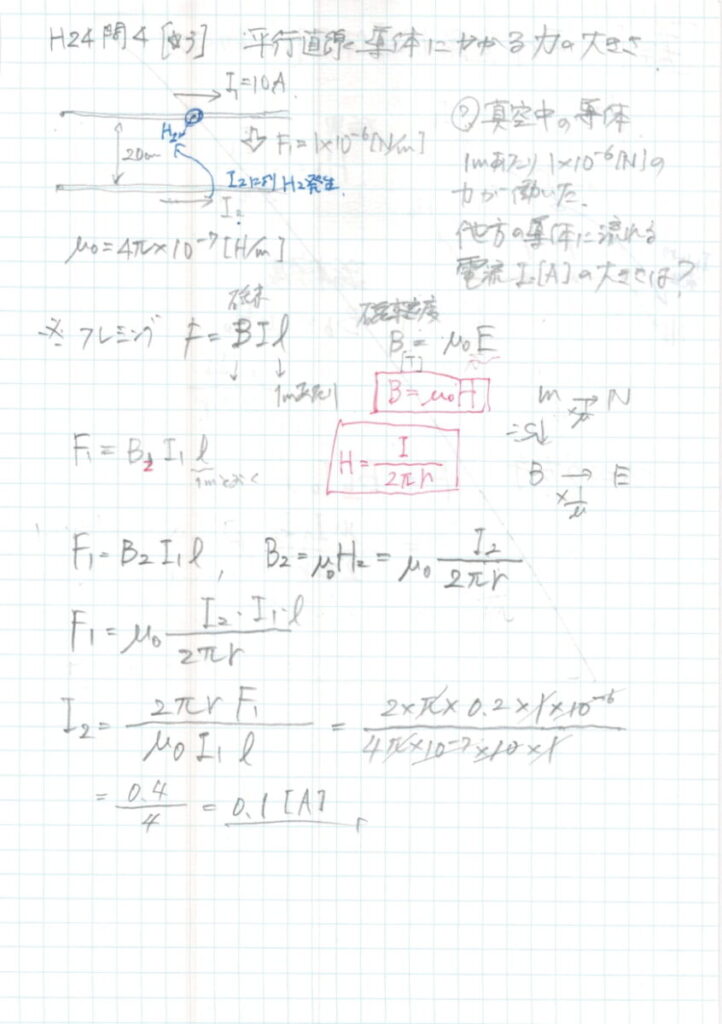 H24問4 平行直線導体にかかる力の大きさ
I₁=10A
H₂
20cm
F₁=1×10⁻⁶[N/m]
I₂により H₂発生
I₂
μ₀=4π×10⁻⁷[H/m]
? 真空中の導体
1mあたり 1×10⁻⁶[N]の
力が働いた.
他方の導体に流れる
電流 I₂[A]の大きさは?
※フレミング F=BIl
1mあたり
磁束密度
B = μ₀E
[T]
B=μ₀H
H = I/2πr
m → N
×1/μ
B → E
×1/μ
F₁=B₂I₁l
1mとおく
F₁=B₂I₁l, B₂=μ₀H₂=μ₀ I₂/2πr
F₁=μ₀ I₂・I₁・l/2πr
I₂= 2πrF₁/μ₀I₁l = 2×π×0.2×1×10⁻⁶/4π×10⁻⁷×10×1
= 0.4/4 = 0.1[A]